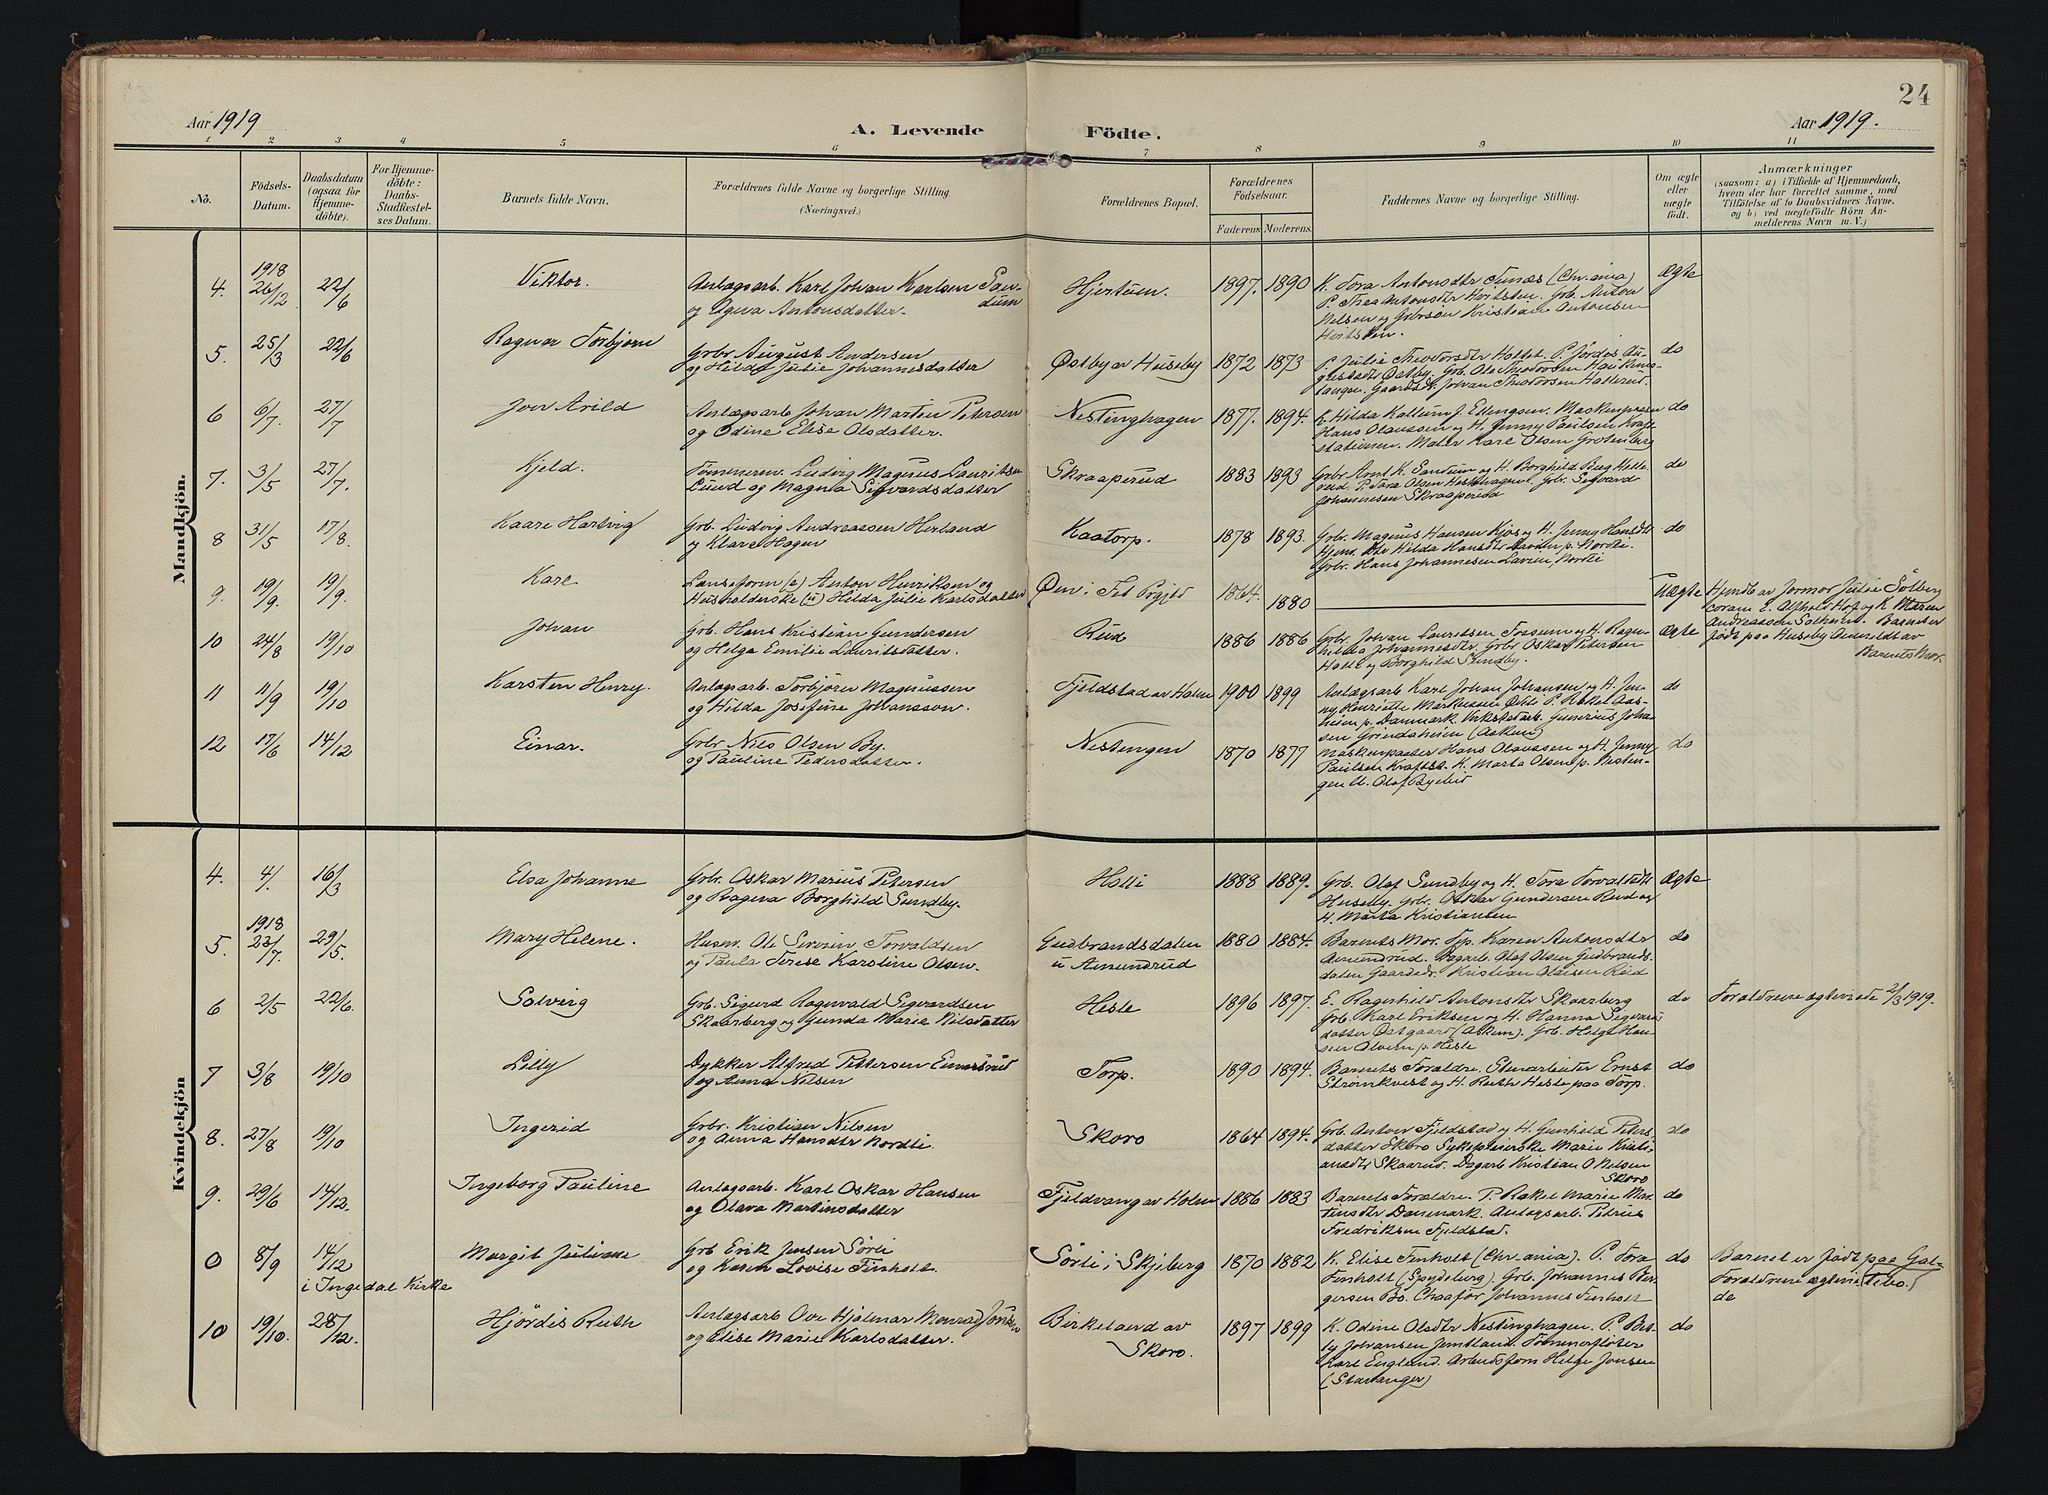 24
Aar 1919
A. Levende Födte.
Aar 1919.
1 2 3 4 5 6 7 8 9 10 11
No.
Födsels-
Datum.
Daabsdatum
(ogsaa for
Hjemme-
döbte).
For Hjemme-
döbte:
Daabs-
Stadfæstel-
ses Datum.
Barnets fulde Navn.
Forældrenes fulde Navne og borgerlige Stilling
(Næringsvei.)
Forældrenes Bopæl.
Forældrenes
Födselsaar.
Faderens Moderens
Faddernes Navne og borgerlige Stilling.
Om ægte
eller
uægte
födt.
Anmærkninger
(saasom: a) i Tilfælde af Hjemmedaab,
hvem der har forrettet samme, med
Tilföielse af to Daabsvidners Navne,
og b) ved uægtefödte Börn An-
melderens Navn m. V.)
Mandkjön.
4. 1918 26/12 22/6 Viktor.
Anlægsarb. Karl Johan Karlsen San-
dum
og Agna Antonsdatter.
Hjertum. 1897. 1890
K. Tora Antonsdtr Funæs (Chr.ania)
P. Thea Antonsdtr Hvitsten. Grb. Anton
Nilsen og Grbrsøn Kristian Antonsen
Hvitsten.
Ægte
5. 25/3 22/6 Ragnar Torbjørn
Grbr August Andersen
og Hilda Julie Johannesdatter
Østby av Huseby 1872 1873
P. Julie Theodorsdtr Hollet. P. Jordis Au-
gustsdtr Østby. Grb. Ole Theodorsen Haukens-
tangen. Gaardst. Johan Theodorsen Hallerud.
do
6 6/7. 27/7 Joer Arild
Anlægsarb Johan Martin Petersen
og Odine Elise Olsdatter.
Nestinghagen 1877. 1894.
Hans Olaussen og H. Jenny Paulsen Kraft-
stationen. Maler Karl Olsen Grotenberg
do
7. 3/5 27/7. Kjeld.
Tømmerm. Ludvig Magnus Lauritsen
Lund og Magna Sigvardsdatter
Skraaperud 1883 1893
Grbr Arnt K. Santum og H. Borghild Berg Helle-
rud. P. Tora Olsen Hestehagen. Grbr. Sigvard
Johannesen Skraaperud
do
8 31/5 17/8. Kaare Hartvig
Grb. Ludvig Andreassen Herland
og Klara Hagen
Kaatorp. 1878 1893.
Grbr. Magnus Hansen Kjos og H. Jenny Hansdtr
Hjem. Dtr Hilda Hansdtr p. Nordli.
Grbr. Hans Johannesen Nordli
do
9. 19/9. 19/9. Karl
Lausaform (e) Anton Henriksen og
Husholderske (u) Hilda Julie Karlsdatter
Øien i Fet Prgjld 1864. 1880
Uægte
Hjmdbt av Jormor Julie Solberg
coram E. Alfhild Hof og K. Maren
Andreassen Solheim. Barnet er
født paa Huseby Anmeldt av
Barnets Mor.
10 24/8 19/10 Johan
Grb. Hans Kristian Gundersen
og Helga Emilie Lauritsdatter.
Rud 1886 1886
Grbr. Johan Lauritsen Fossum og H. Ragn-
hilda Johannesdtr. Grbr Oskar Petersen
Holli og Borghild Sundby.
Ægte
11 11/9 19/10 Karsten Henry.
Anlagsarb. Torbjørn Magnussen
og Hilda Josefine Johansson.
Fjeldstad av Holm 1900 1899
Anlægsarb Karl Johan Johansen og H. Jen-
ny Henriette Markussen P. Rakel Aas-
heim p. Danmark. Verkstedarb. Gunerius Joha-
sen Grindaheim (Askim)
do
12 17/6 14/12 Einar.
Grbr Nils Olsen By.
og Pauline Pedersdatter.
Nestingen 1870 1877
Maskinpasser Hans Olaussen og H. Jenny
Paulsen Kraftst. K. Marta Olsen p. Nestin-
gen U. Olaf Byelid
do
Kvindekjön
4. 4/. 16/3 Elsa Johanne
Grbr. Oskar Marius Petersen
og Ragna Borghild Sundby.
Holli 1888 1889.
Grb. Olaf Sundby og H. Tora Torvaldsdtr
Huseby. Grbr. Oskar Gundersen Rud og
H. Marta Kristiansen
Ægte
5. 1918 23/7. 29/5. Mary Helene.
Husm. Ole Severin Torvaldsen
og Paula Terese Karstine Olsen.
Gudbrandsdalen
u Amundrud
1880 1884.
Barnets Mor. Frp. Karen Antonsdtr
Amundrud. Dagarb. Olaf Olsen Gudbrands-
dalen Gaardbr. Kristian Olaisen Rud
do
6 2/5 22/6. Solveig
Grb. Sigurd Ragnvald Sigvardsen
Skaarberg og Gunda Marie Nilsdatter
Hesle 1896 1897.
E. Ragnhild Antonsdtr Skaarberg
Grb. Karl Eriksen og H. Hanna Sigvards-
datter Østgaard (Askim). Grb. Helge Han-
sen Olven p. Hesle
do
Foraldrene ægteviede 2/3 1919.
7 3/8 19/10 Lilly
Dykker Alfred Pettersen Einarsrud
og Anna Nilsen
Torp. 1890 1894.
Barnets Foraldre. Stenarbeider Ernst
Strømkvist og H. Ruth Hesle paa Torp.
do
8. 27/8 19/10 Ingerid
Grbr. Kristian Nilsen
og Anna Hansdtr Nordli.
Skoro 1864 1894.
Grb. Anton Fjeldstad og H. Gunhild Peters-
datter Skoro Sykepleierske Marie Kristi-
ansdtr Skaarud. Dagarb Kristian O Nilsen
Skoro
do
9. 29/6 14/12. Ingeborg Pauline
Anlagsarb. Karl Oskar Hansen
og Olava Martinsdatter
Fjeldvang av Holm 1886 1883
Barnets Foraldre. P. Rakel Marie Mar-
tinsdtr Danmark. Anlagsarb. Petrus
Fredriksen Fjeldstad.
do
0 8/9 14/12 Margit Juliane
i Ingedal Kirke
Grb Erik Jensen Sørli
og Karen Lovise Finholt.
Sørli i Skjeberg 1870 1882
K. Elise Finholt (Chr.ania). P. Tora
Finholt (Spydeberg). Grb. Johannes Ber-
gersen Bo. Chaafør Johannes Finholt
do
Barnet er født paa Gal-
Foraldrene ægtevie- tebo.
de
10 19/10. 28/12. Hjördis Ruth
Anlagsarb Ove Hjalmar Monrad Jonsen
og Elise Marie Karlsdatter.
Birkeland av
Skoro.
1897 1899
K. Odine Olsdtr Nestinghagen. P. Bet-
ty Johansen Jemtland. Tømmerfløter
Karl Englund. Arbeidsform Helge Jonsen
(Stavanger)
do